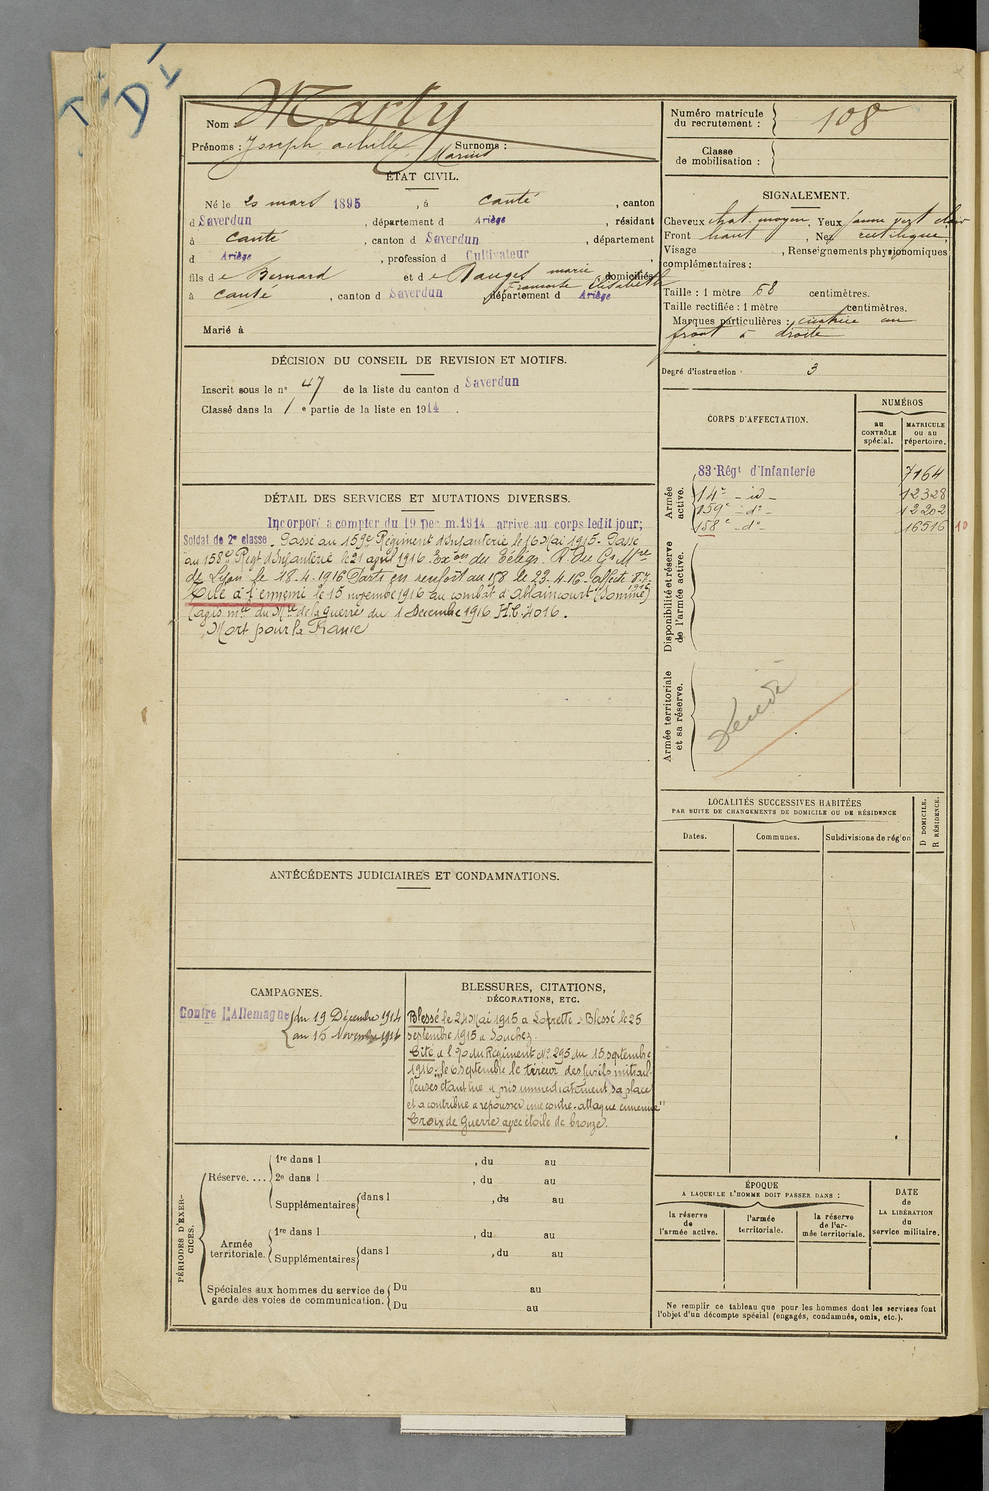 D
Nom Marty
Prénoms : Joseph achille Marius Surnoms :
ÉTAT CIVIL.
Né le 20 mars 1895, à Canté, canton
d Saverdun, département d Ariège, résidant
à Canté, canton d Saverdun, département
d Ariège, profession d Cultivateur,
fils de Bernard et de marie françoise Elisabeth domiciliés
à Canté, canton d Saverdun département d Ariège
Marié à
DÉCISION DU CONSEIL DE REVISION ET MOTIFS.
Inscrit sous le n° 47 de la liste du canton d Saverdun
Classé dans la 1 e partie de la liste en 1914.
DÉTAIL DES SERVICES ET MUTATIONS DIVERSES.
Incorporé a compter du 19 Decem. 1914 arrivé au corps ledit jour;
Soldat de 2e classe. Passé au 159e Régiment d'Infanterie le 16 Mai 1915. Passé
au 158e Regt d'Infanterie le 21 april 1916. du Gr Mre
de Lyon le 18.4.1916 Parti en renfort au 158 le 23.4.16.
Tué à l'ennemi le 15 novembre 1916 au combat d'Ablaincourt (Somme)
du Mre de la guerre du 1 Decembre 1916 H.C. 4016.
Mort pour la France
ANTÉCÉDENTS JUDICIAIRES ET CONDAMNATIONS.
CAMPAGNES.
Contre L'Allemagne du 19 Décembre 1914
au 15 Novembre 1916
BLESSURES, CITATIONS,
DÉCORATIONS, ETC.
Blessé le 24 Mai 1915 a Lorette. Blessé le 25
septembre 1915 a Souchez.
Cité a l'O/ du Régiment N° 295 du 15 septembre
1916: "le 6 septembre le tireur des fusils mitrail-
leuses étant tué a pris immediatement sa place
et a contribué a repousser une contre-attaque ennemie"
Croix de Guerre avec étoile de bronze.
PÉRIODES D'EXER-
CICES.
Réserve....
1re dans l , du au
2e dans l , du au
Supplémentaires dans l , du au
Armée
territoriale.
1re dans l , du au
Supplémentaires dans l , du au
Spéciales aux hommes du service de
garde des voies de communication.
Du au
Du au
Numéro matricule
du recrutement : 108
Classe
de mobilisation :
SIGNALEMENT.
Cheveux chat. moyen, Yeux jaune vert clair
Front haut, Nez rectiligne,
Visage , Renseignements physionomiques
complémentaires :
Taille : 1 mètre 68 centimètres.
Taille rectifiée : 1 mètre centimètres.
Marques particulières : cicatrice au
front à droite
Degré d'instruction 3
CORPS D'AFFECTATION.
NUMÉROS
au
CONTRÔLE
spécial.
MATRICULE
ou au
répertoire.
Armée
active.
83e Régt d'Infanterie 7164
14e - id - 12328
159e - do - 12202
158e - do - 16516 10
Disponibilité et réserve
de l'armée active.
Armée territoriale
et sa réserve.
LOCALITÉS SUCCESSIVES HABITÉES
PAR SUITE DE CHANGEMENTS DE DOMICILE OU DE RÉSIDENCE
Dates.
Communes.
Subdivisions de région
D DOMICILE.
R RÉSIDENCE.
ÉPOQUE
A LAQUELLE L'HOMME DOIT PASSER DANS :
la réserve
de
l'armée active.
l'armée
territoriale.
la réserve
de l'ar-
mée territoriale.
DATE
de
LA LIBÉRATION
du
service militaire.
Ne remplir ce tableau que pour les hommes dont les services font
l'objet d'un décompte spécial (engagés, condamnés, omis, etc.).